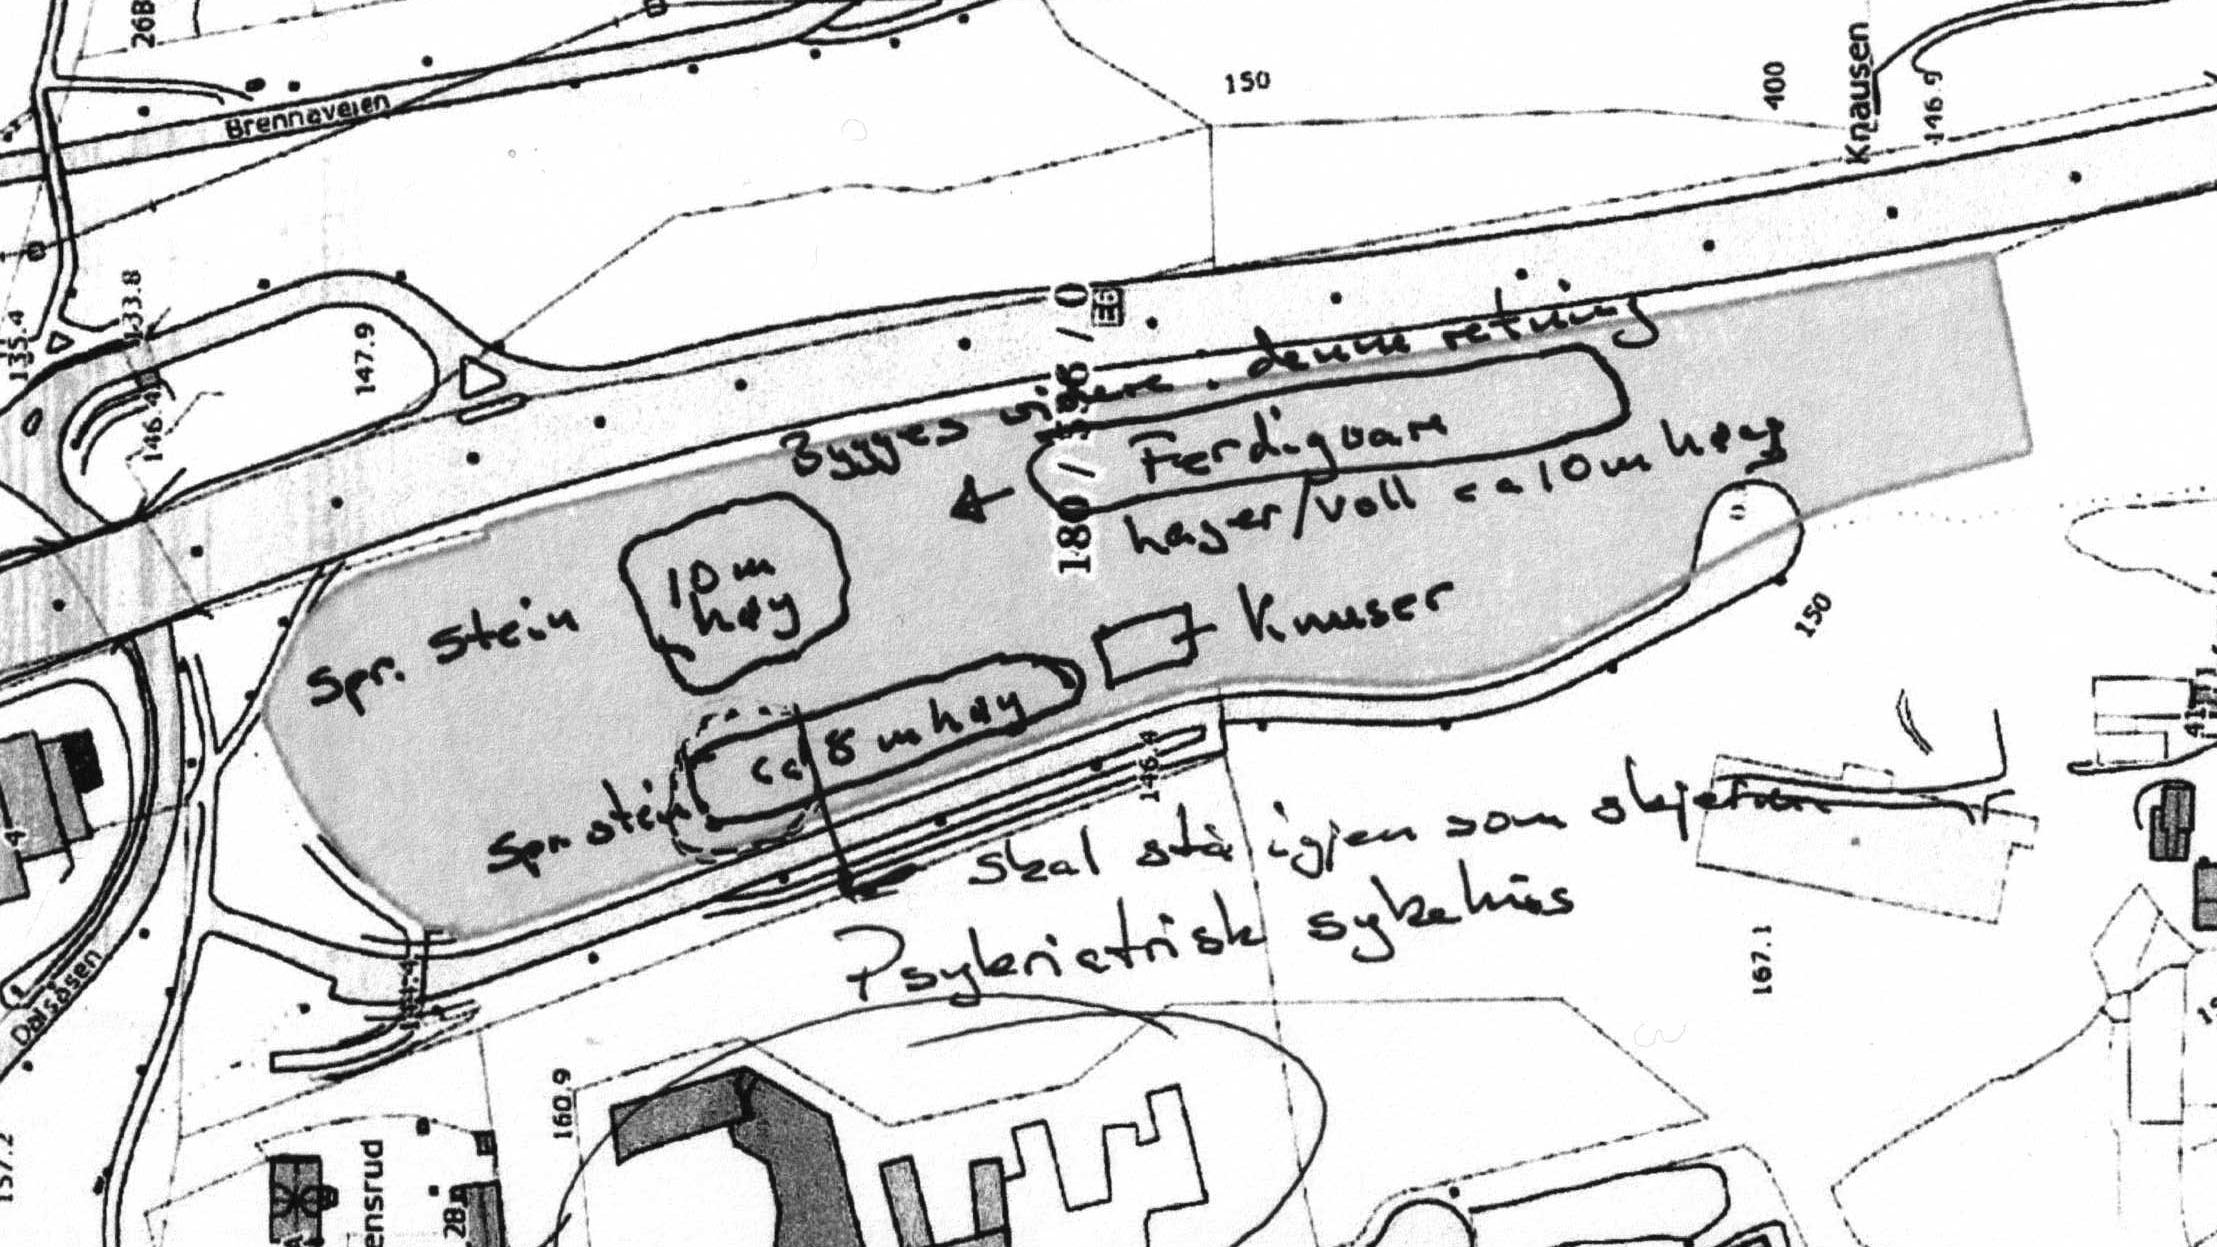 26B
Brennaveien
150
400
Knausen
146.9
135.4
133.8
147.9
146.4
E6
Bygges videre i denne retning
Ferdigvare
lager/voll ca 10 m høy
180 /
/ 0
10 m
høy
Spr. stein
Knuser
150
ca 8 m høy
Spr stein
146.4
41
skal stå igjen som skjerm
Psykriatrisk sykehus
167.1
Dalsåsen
160.9
157.2
ensrud
28